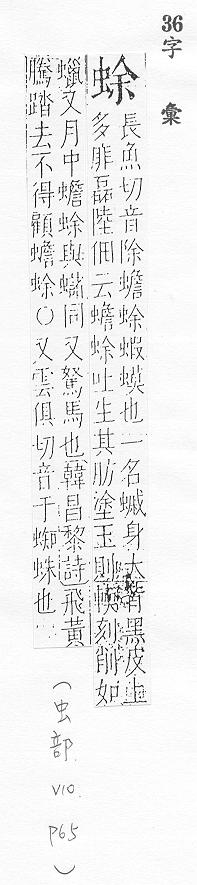 36字彙
蜍
長魚切音除蟾蜍蝦蟆也一名蝛身大背黑皮上
多痱磊陸佃云蟾蜍吐生其肪塗玉則軟刻削如
蠟又月中蟾蜍與蠩同又駑馬也韓昌黎詩飛黃
騰踏去不得顧蟾蜍〇又雲俱切音于蜘蛛也
(虫部.
V10.
P65
)